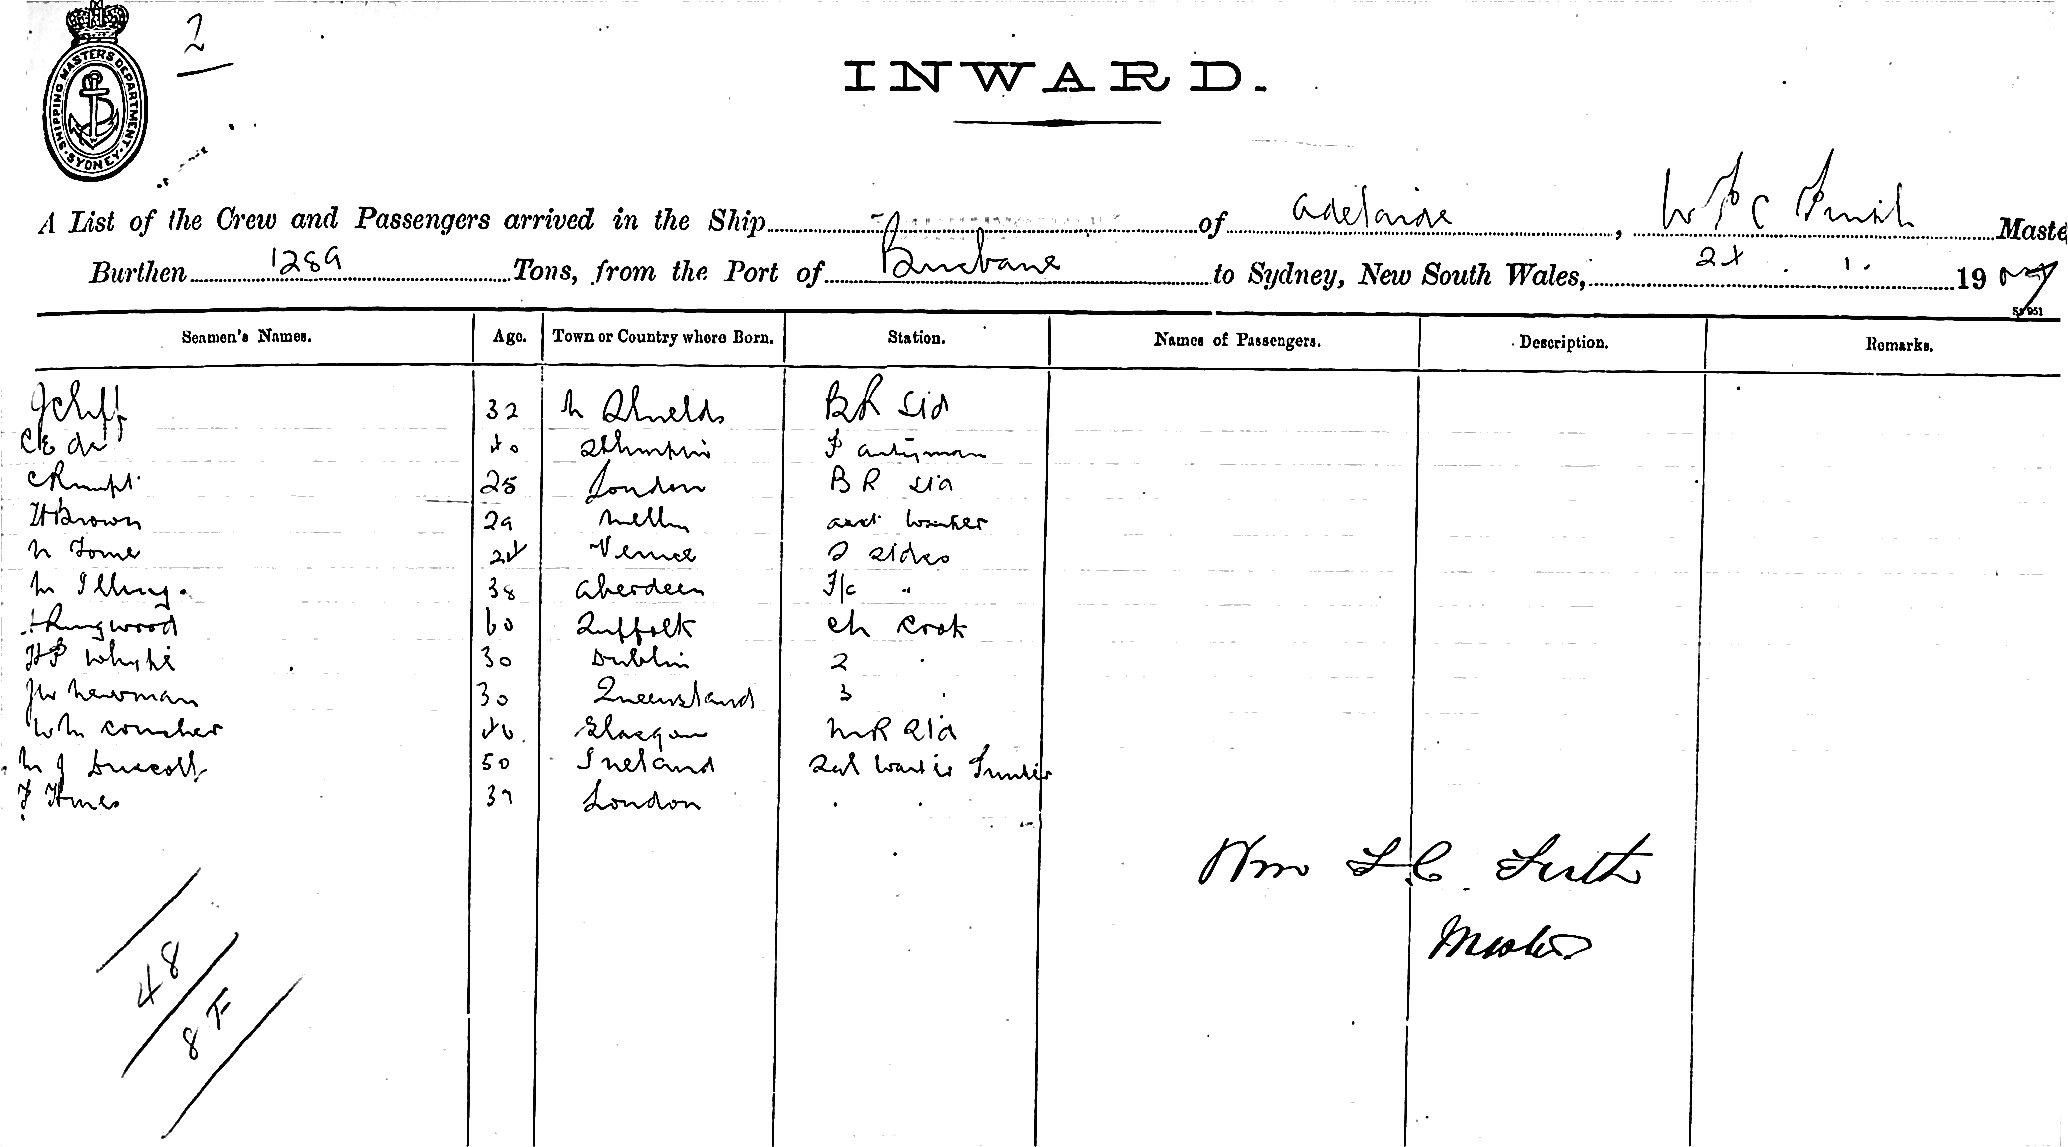 2
SHIPPING MASTERS DEPARTMENT. SYDNEY.
INWARD.
A List of the Crew and Passengers arrived in the Ship of Adelaide, W F C Master
Burthen 1289 Tons, from the Port of Brisbane to Sydney, New South Wales, 24 . 1 . 1907
Seamen's Names. Age. Town or Country where Born. Station. Names of Passengers. Description. Remarks.
J Cliff 32 N Shields BR Std
40 Pantryman
25 London BR Std
H Brown 29 Melbn
N Tome 24 Venice 2 Stdss
38 Aberdeen F/c "
Ringwood 60 Suffolk Ch Cook
H P Whyte 30 Dublin 2 "
J W Newman 30 Queensland 3 "
W M 46 Glasgow MR Std
M J Driscoll 50 Ireland
F 37 London " "
Wm F. C. Firth
Master
48
8 F